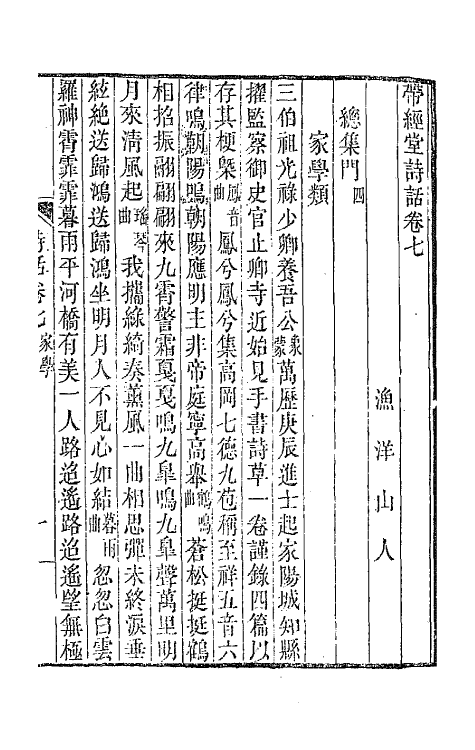 帶經堂詩話卷七
漁洋山人
總集門四
家學類
三伯祖光祿少卿養吾公象蒙萬歷庚辰進士起家陽城知縣
擢監察御史官止卿寺近始見手書詩草一卷謹錄四篇以
存其梗槩鳳音曲鳳兮鳳兮集高岡七德九苞稱至祥五音六
律鳴朝陽鳴朝陽應明主非帝庭寧高舉鶴鳴曲蒼松挺挺鶴
相招振翩翩翩來九霄警霜戛戛鳴九臯鳴九臯聲萬里明
月來清風起瑤琴曲我攜綠綺奏薰風一曲相思彈未終淚垂
絃絶送歸鴻送歸鴻坐明月人不見心如結暮雨曲忽忽白雲
羅神霄霏霏暮雨平河橋有美一人路迢遙路迢遙望無極
詩話卷七家學
一